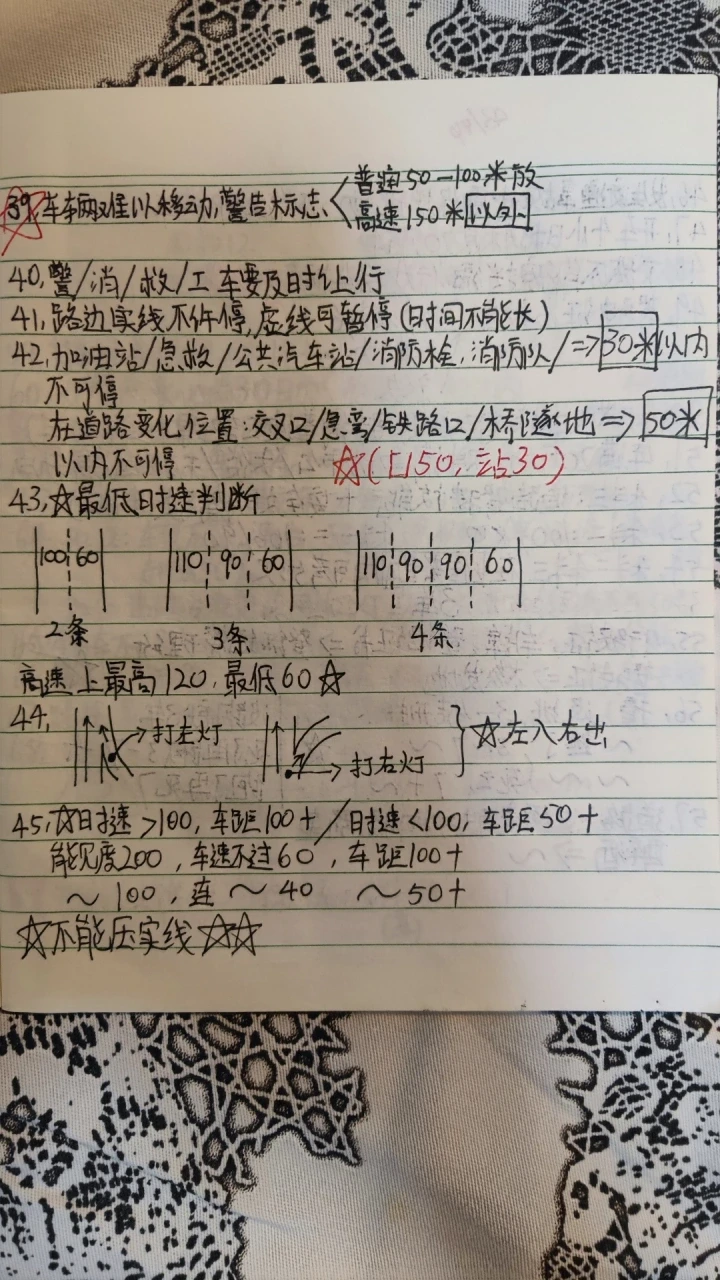 39, 车车两难以移动, 警告标志 < 普通50-100米放
高速150米以外
40, 警/消/救/工 车要及时让行
41, 路边实线不许停, 虚线可暂停(时间不能长)
42, 加油站/急救/公共汽车站/消防栓, 消防队/⇒30米以内
不可停
在道路变化位置:交叉口/急弯/铁路口/桥隧地⇒50米
以内不可停
☆(口50, 站30)
43, ☆最低时速判断
100 60 110 90 60 110 90 90 60
2条 3条 4条
高速上最高120, 最低60☆
44, 打左灯 打右灯 } ☆左入右出
45, ☆时速>100, 车距100+/时速<100, 车距50+
能见度200, 车速不过60, 车距100+
~100, 速~40 ~50+
☆不能压实线☆☆